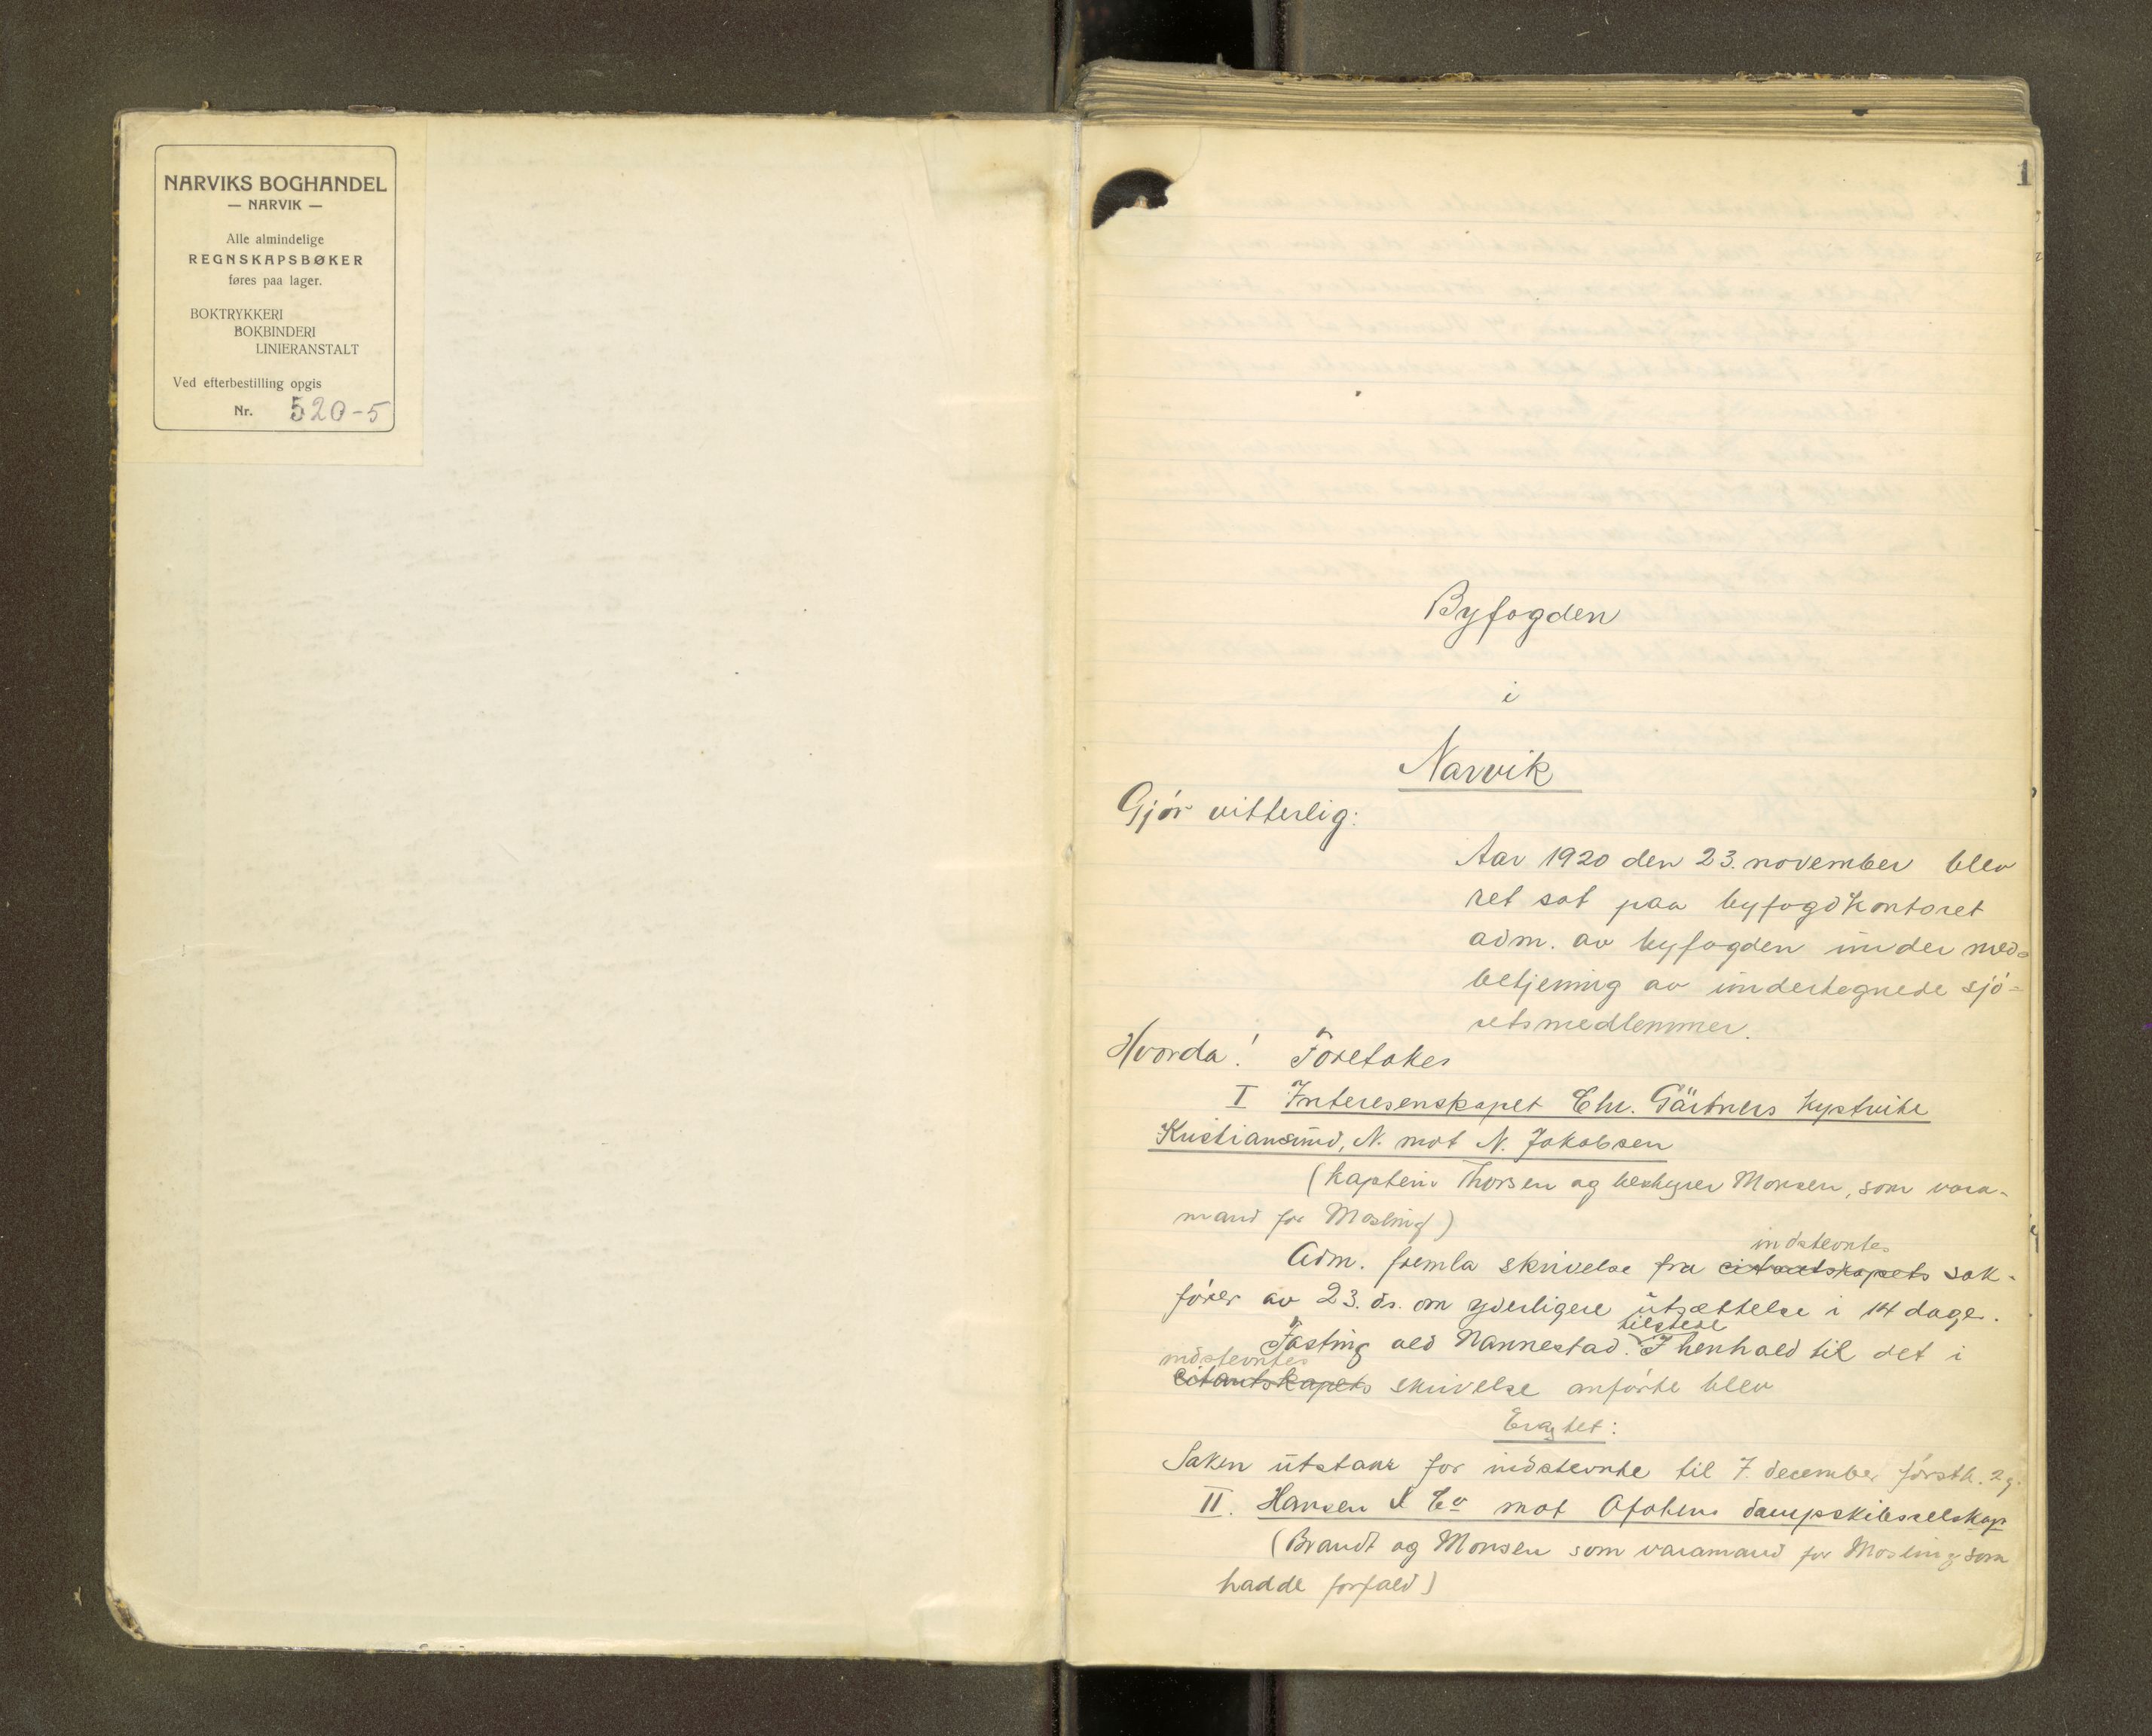 NARVIKS BOGHANDEL
— NARVIK —
Alle almindelige
REGNSKAPSBØKER
føres paa lager.
BOKTRYKKERI
BOKBINDERI
LINIERANSTALT
Ved efterbestilling opgis
Nr. 520-5
1
Byfogden
i
Narvik
Gjør vitterlig:
Aar 1920 den 23. november blev
ret sat paa byfogdkontoret
adm. av byfogden under med-
betjening av undertegnede sjø-
retsmedlemmer.
Hvorda! Foretokes
I Interesenskapet Chr. Gärtners Kystrute
Kristiansund, N. mot N. Jakobsen
(Kaptein Thorsen og bestyrer Monsen, som vara-
mand for Mosling)
indstevntes
Adm. fremla skrivelse fra citantskapets sak-
fører av 23. ds. om yderligere utsættelse i 14 dage.
tilstede
Fasting ved Nannestad. I henhold til det i
indstevntes
citantskapets skrivelse anførte blev
Eragtet:
Saken utstaar for indstevnte til 7. december førstk. 2g.
II. Hansen & Co mot Ofotens dampskibsselskap
(Brandt og Monsen som varamand for Mosling som
hadde forfald)